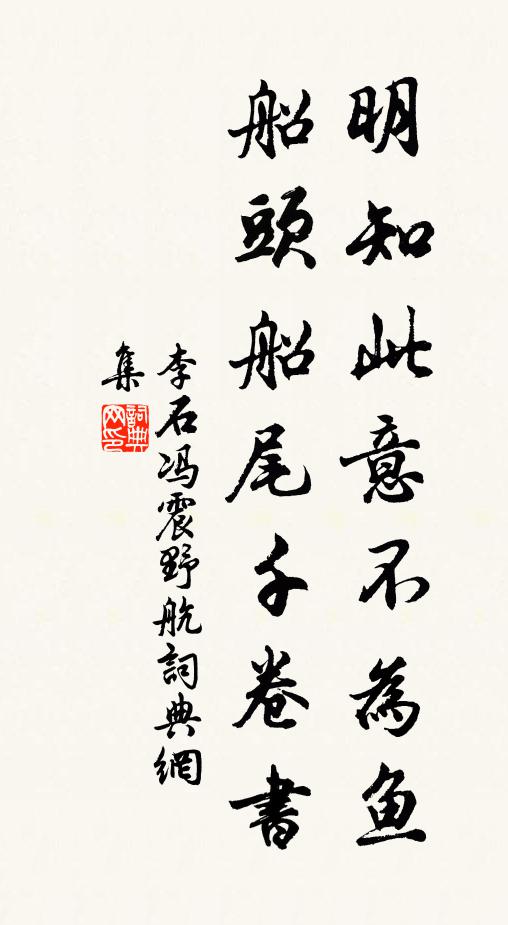 明知此意不為鱼
船頭船尾千卷書
李石冯震野航詞典網
集
詞典网印